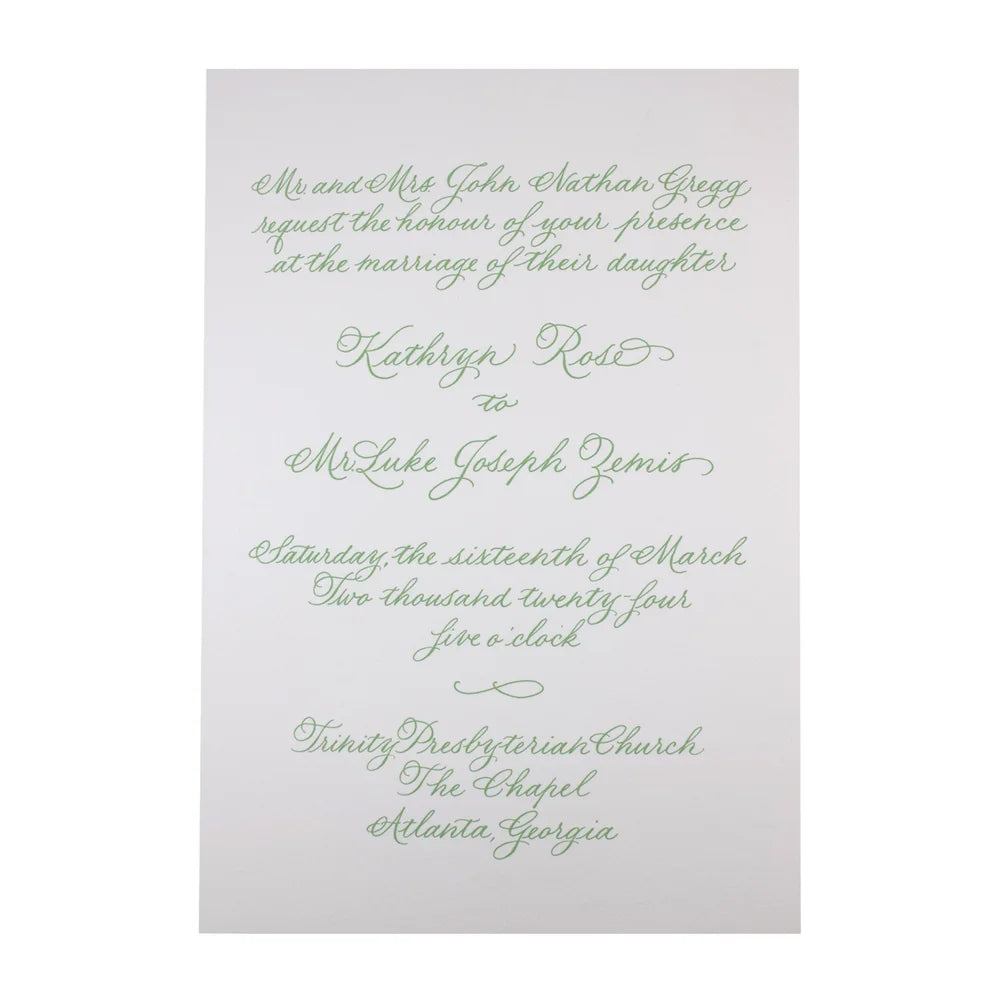 Mr. and Mrs. John Nathan Gregg
request the honour of your presence
at the marriage of their daughter
Kathryn Rose
to
Mr. Luke Joseph Zemis
Saturday, the sixteenth of March
Two thousand twenty-four
five o'clock
Trinity Presbyterian Church
The Chapel
Atlanta, Georgia